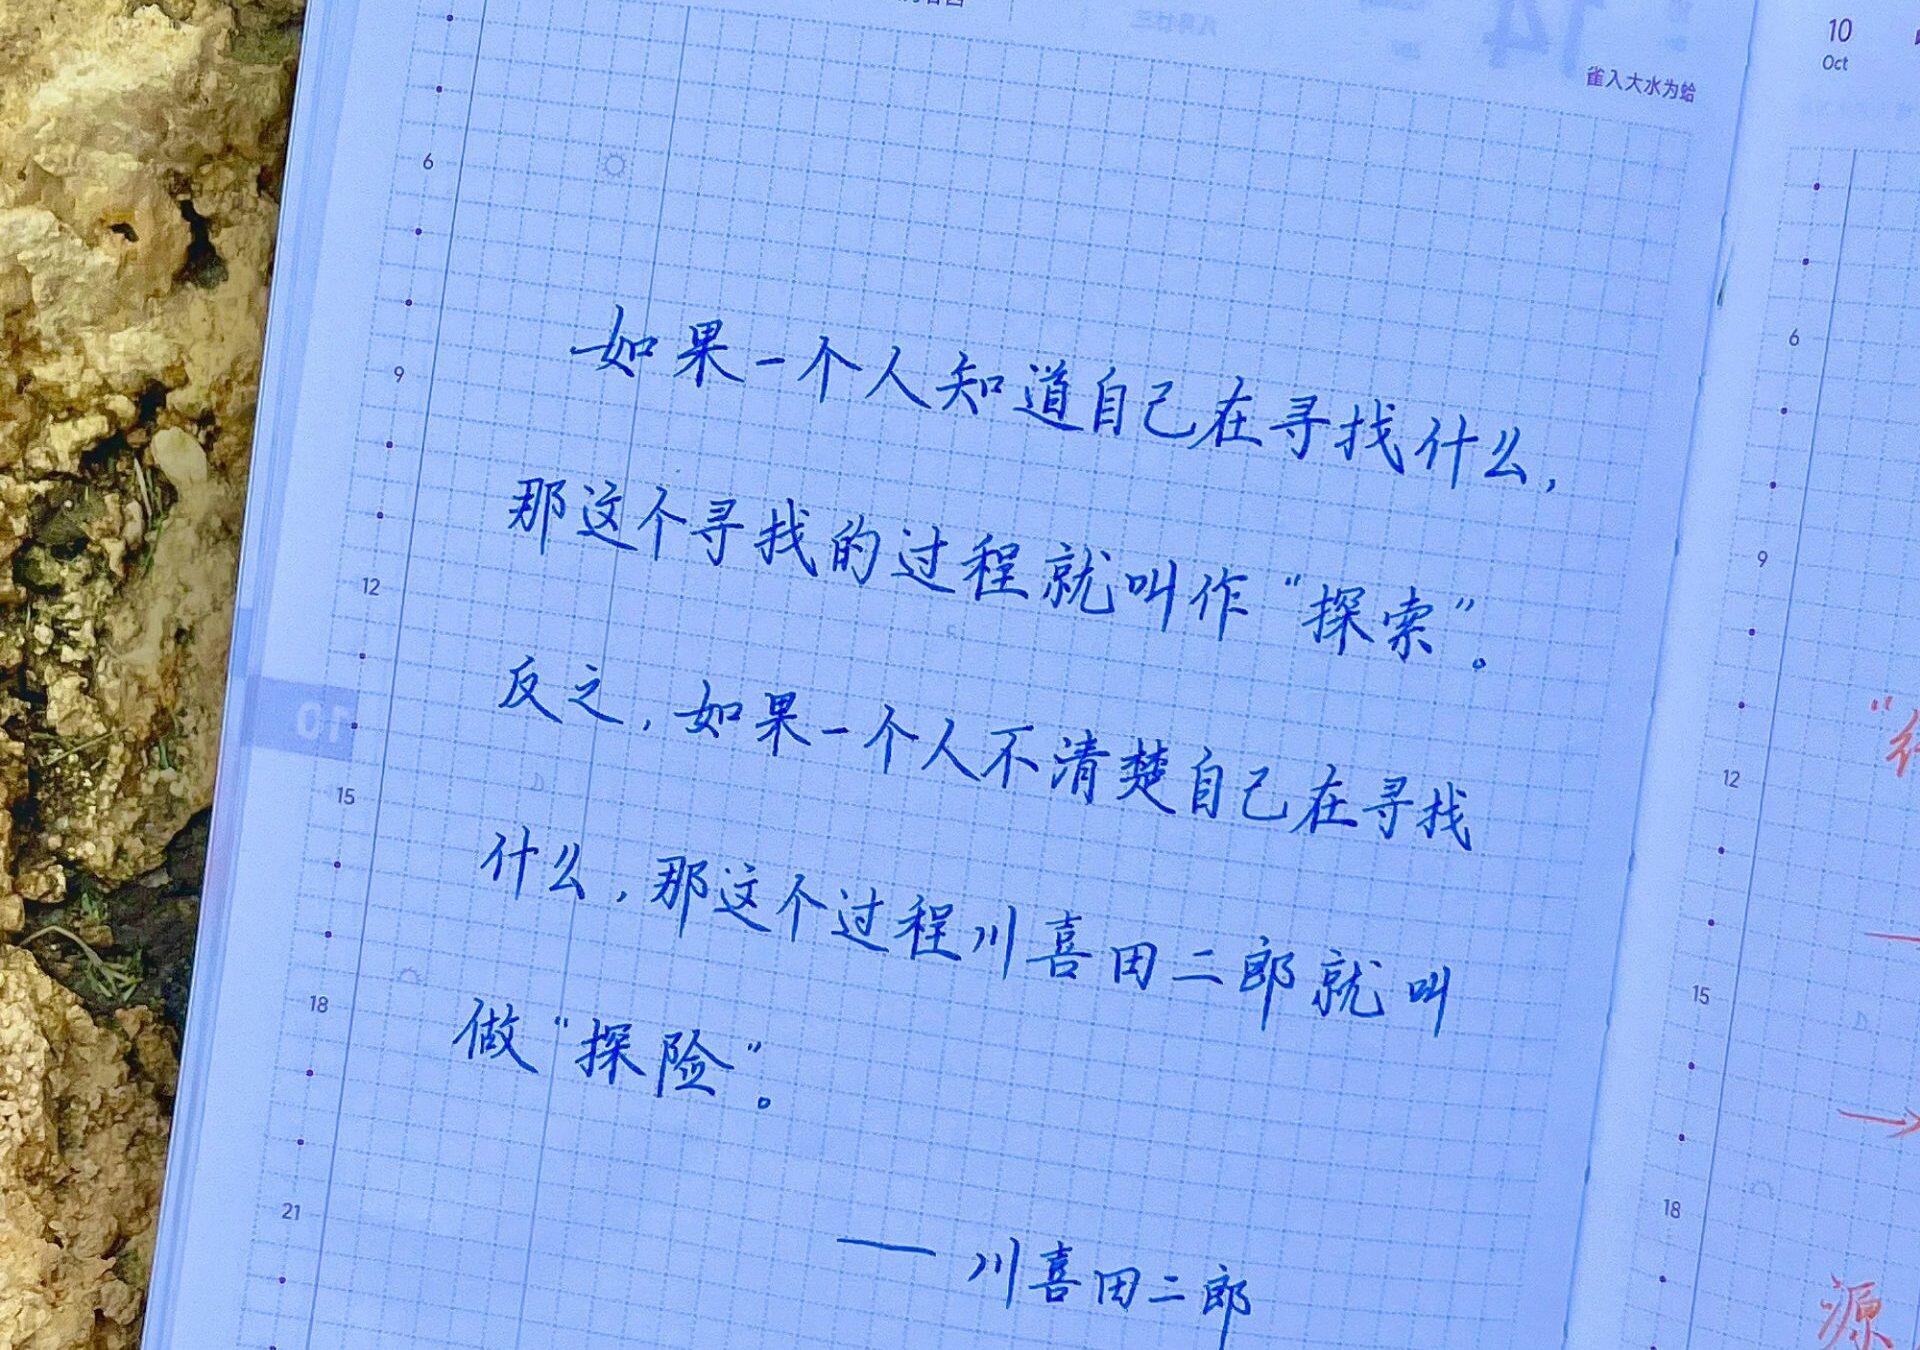 雀入大水为蛤
10
Oct
6
9
12
15
18
21
10
如果一个人知道自己在寻找什么,
那这个寻找的过程就叫作“探索”。
反之,如果一个人不清楚自己在寻找
什么,那这个过程川喜田二郎就叫
做“探险”。
—— 川喜田二郎
6
9
12
15
18
源